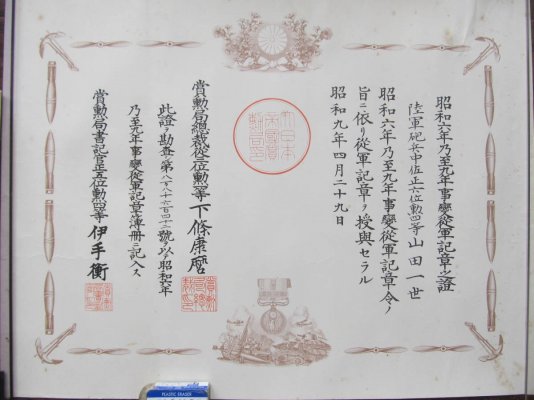 昭和六年乃至九年事變從軍記章之證
陸軍砲兵中佐正六位勲四等山田一世
昭和六年乃至九年事變從軍記章令ノ
旨ニ依リ從軍記章ヲ授與セラル
昭和九年四月二十九日
大日本
帝國賞
勲局印
賞勲局總裁從三位勲二等下條康麿
此證ヲ勘査シ第八六四十二號ヲ以テ昭和六年
乃至九年事變從軍記章簿冊ニ記入ス
賞勲局書記官正五位勲四等伊手衡
PLASTIC ERASER